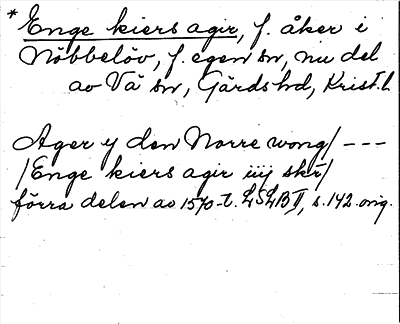 * Enge kiers agir, f. åker i
Nöbbelöv, f. egen sn, nu del
av Vä sn, Gärds hd, Krist. l.
Ager y den Norre wong/ ---
/Enge kiers agir iiij skr/
förra delen av 1570-t. LSLB II, s. 142. orig.